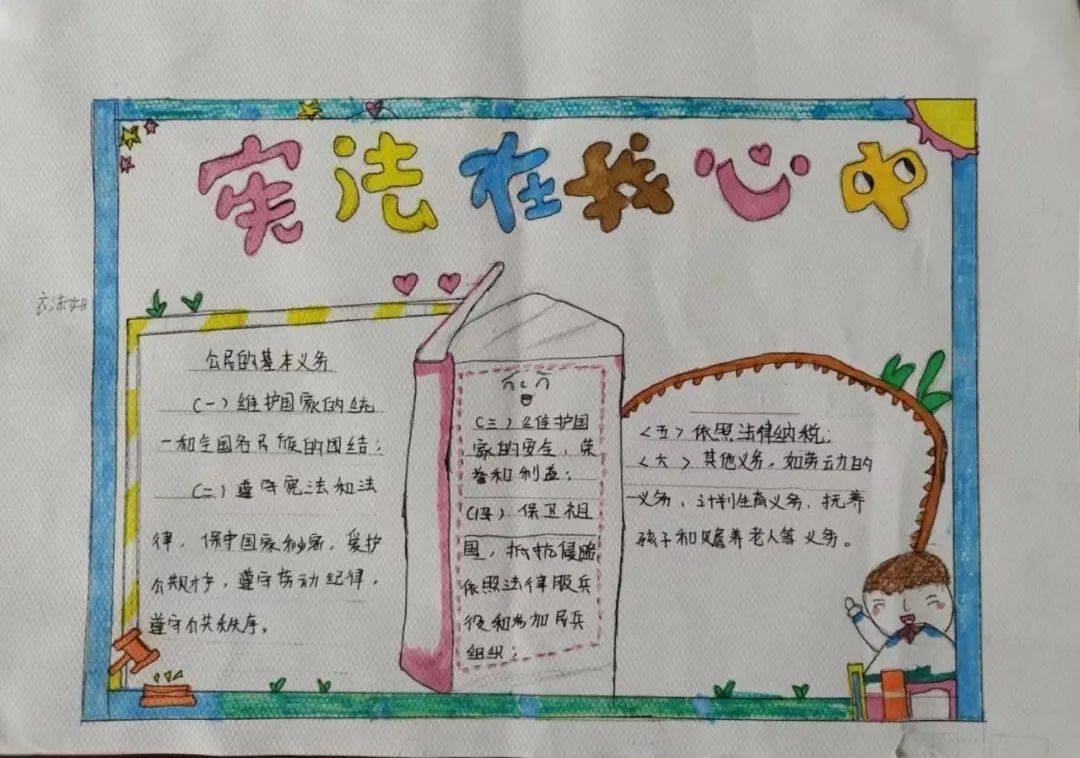 宪法在我心中
公民的基本义务
(一)维护国家的统
一和全国各民族的团结;
(二)遵守宪法和法
律,保守国家秘密,爱护
公共财产,遵守劳动纪律,
遵守公共秩序。
(三)维护国
家的安全,荣
誉和利益;
(四)保卫祖
国,抵抗侵略
依照法律服兵
役和参加民兵
组织;
<五>依照法律纳税;
<六>其他义务,如劳动的
义务,计划生育义务,抚养
孩子和赡养老人等义务。